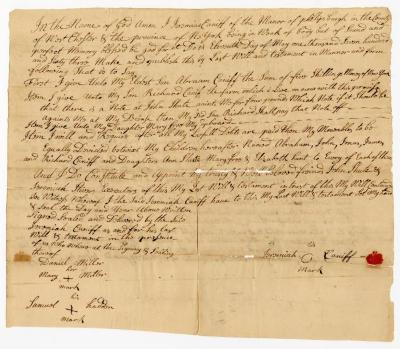 In the Name of God Amen I Jeremiah Caniff of the Manor of philipsburgh in the County
of West Chester & the province of New York being in Weak of body but of sound and
perfect Memory Blessed be god for it Do this Eleventh Day of May one thousand Seven hundred
and Sixty three Make and publish this my Last Will and testament in Manner and form
following That is to Say
First I give Unto My Eldest Son Abraham Caniff the Sum of five Shillings Money of New York
Item I give Unto My Son Richard Caniff the farm which I Live on
that there is a Note of John Shute against Me for four pounds Which Note if it Should be
against Me at My Decease then My Said Son Richard Shall pay that Note off
Item I give Unto My Daughter Mary Cupboard
Item I will and Order after all My Legall Debts are paid then My Moveables to be
Equally Devided between My Children hereafter Named Abraham, John, Jonas, James
and Richard Caniff and Daughters Ann Shute Mary and Elizabeth hunt to Every of Each of them
And I Do Constitute and Appoint My trusty & Well beloved friends John Shute &
Jeremiah Executors of this My Last Will & testament
In Witness Whereof I the Said Jeremiah Caniff have to this My Last Will & testament Set My hand
& Seal the Day and Year Above Written
Signed Sealed and Delivered by the Said
Jeremiah Caniff as and for his Last
Will & testament in the presence
of us Who Where at the Signing & Sealing
thereof
Daniel Miller
her
Mary + Miller
mark
his
Samuel +
mark
his
Jeremiah Caniff
mark